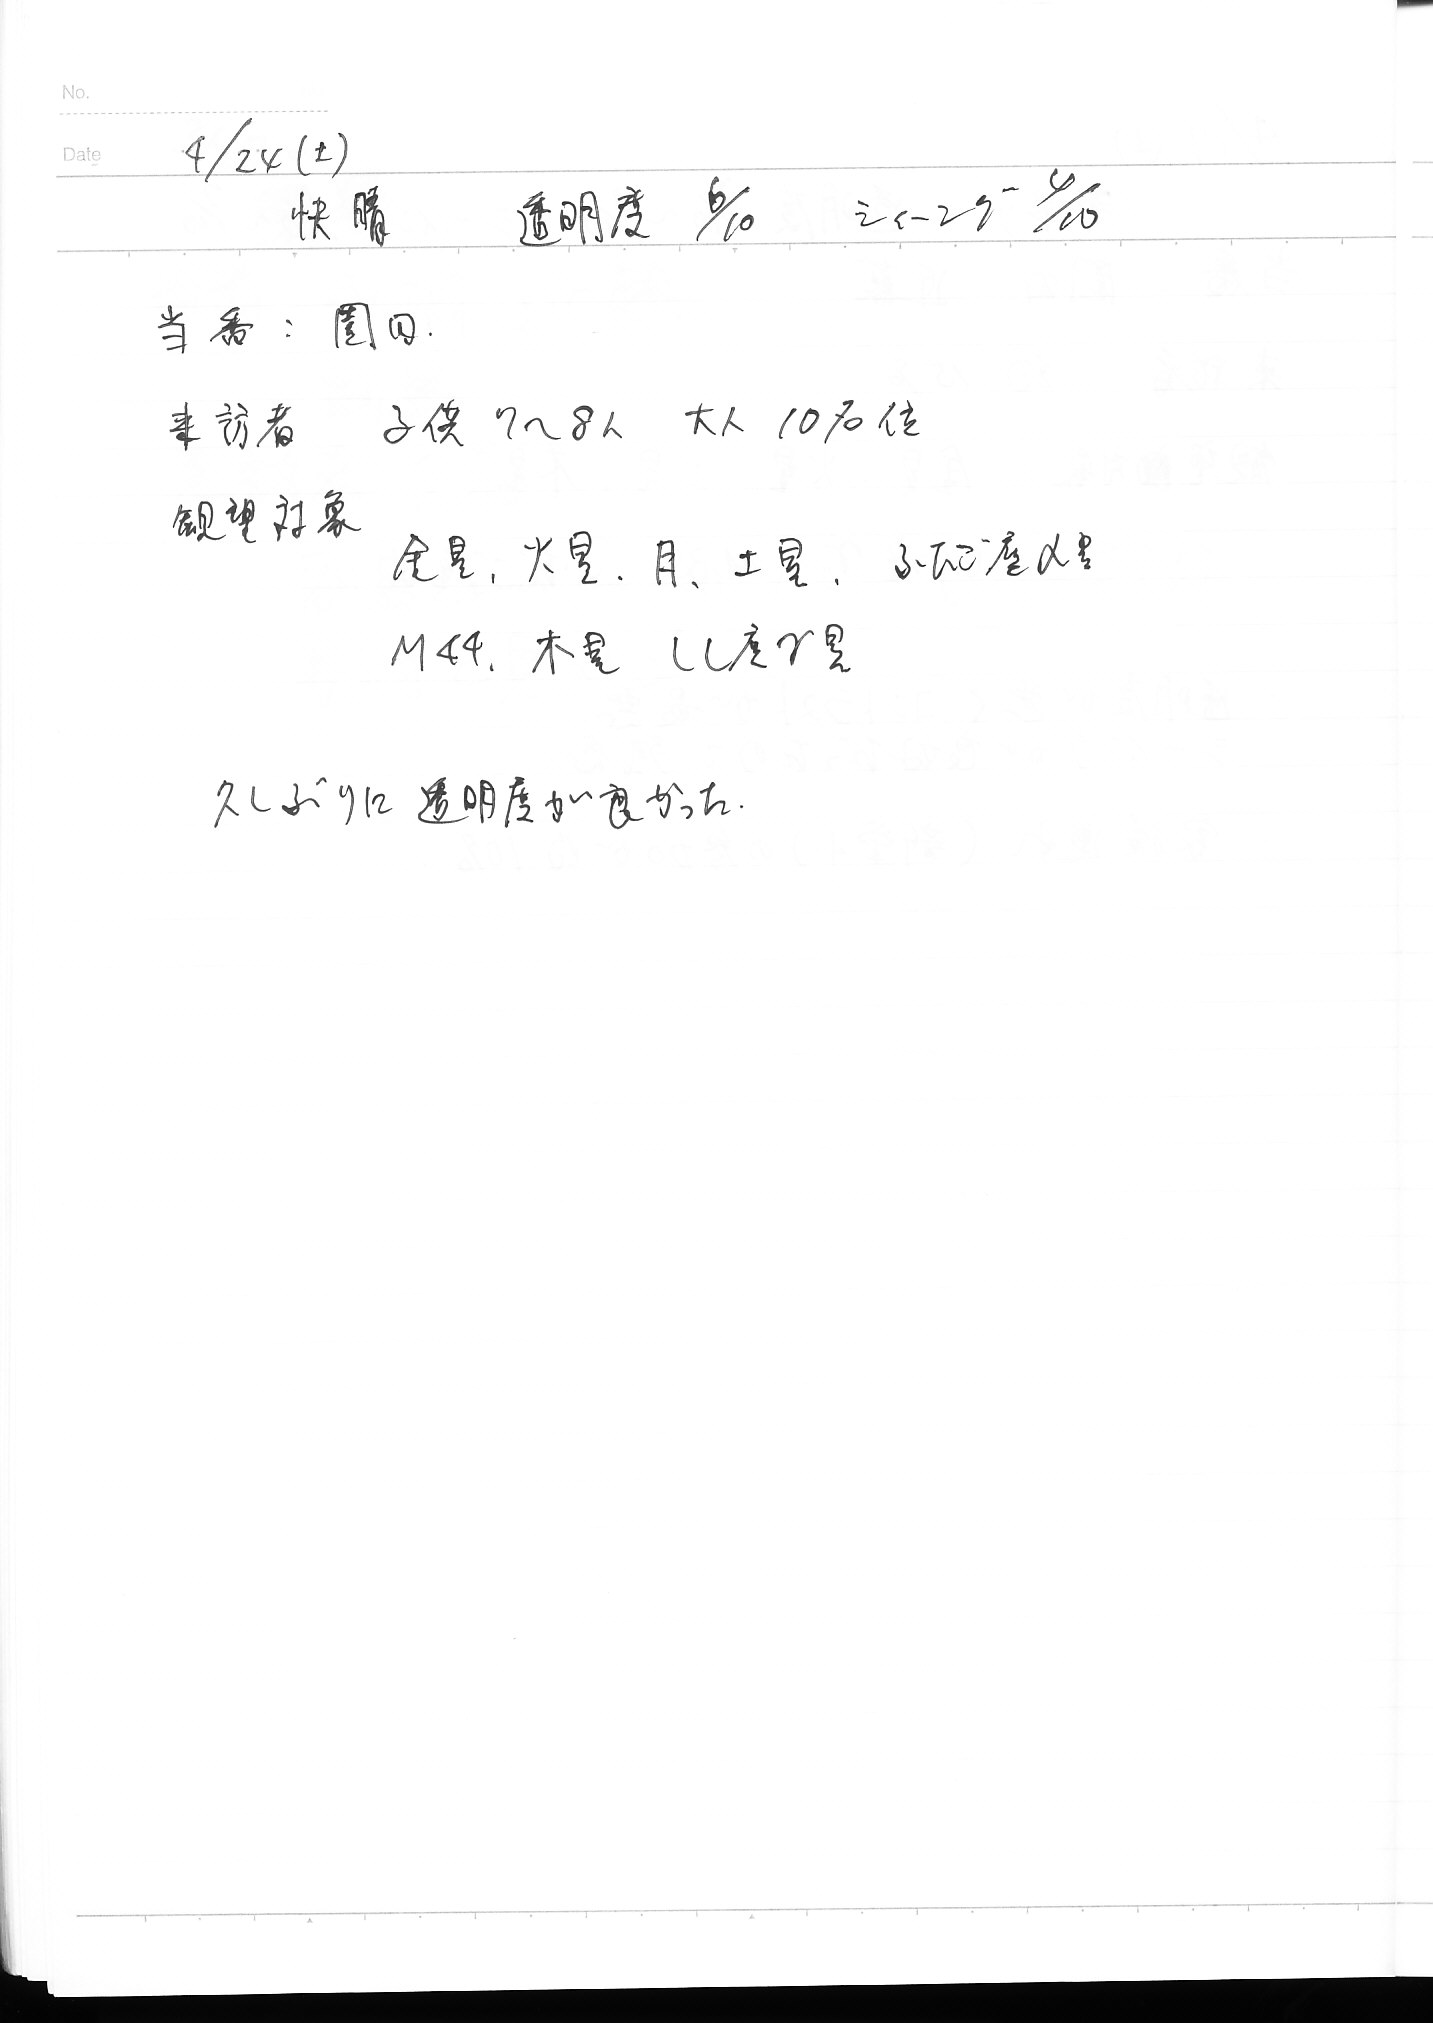 No.
Date 4/24(土)
快晴 透明度 6/10 シィーング 4/10
当番: 園田.
来訪者 子供 7〜8人 大人 10名位
観望対象
金星、火星、月、土星、ふたご座α星
M44、木星 しし座γ星
久しぶりに透明度が良かった.